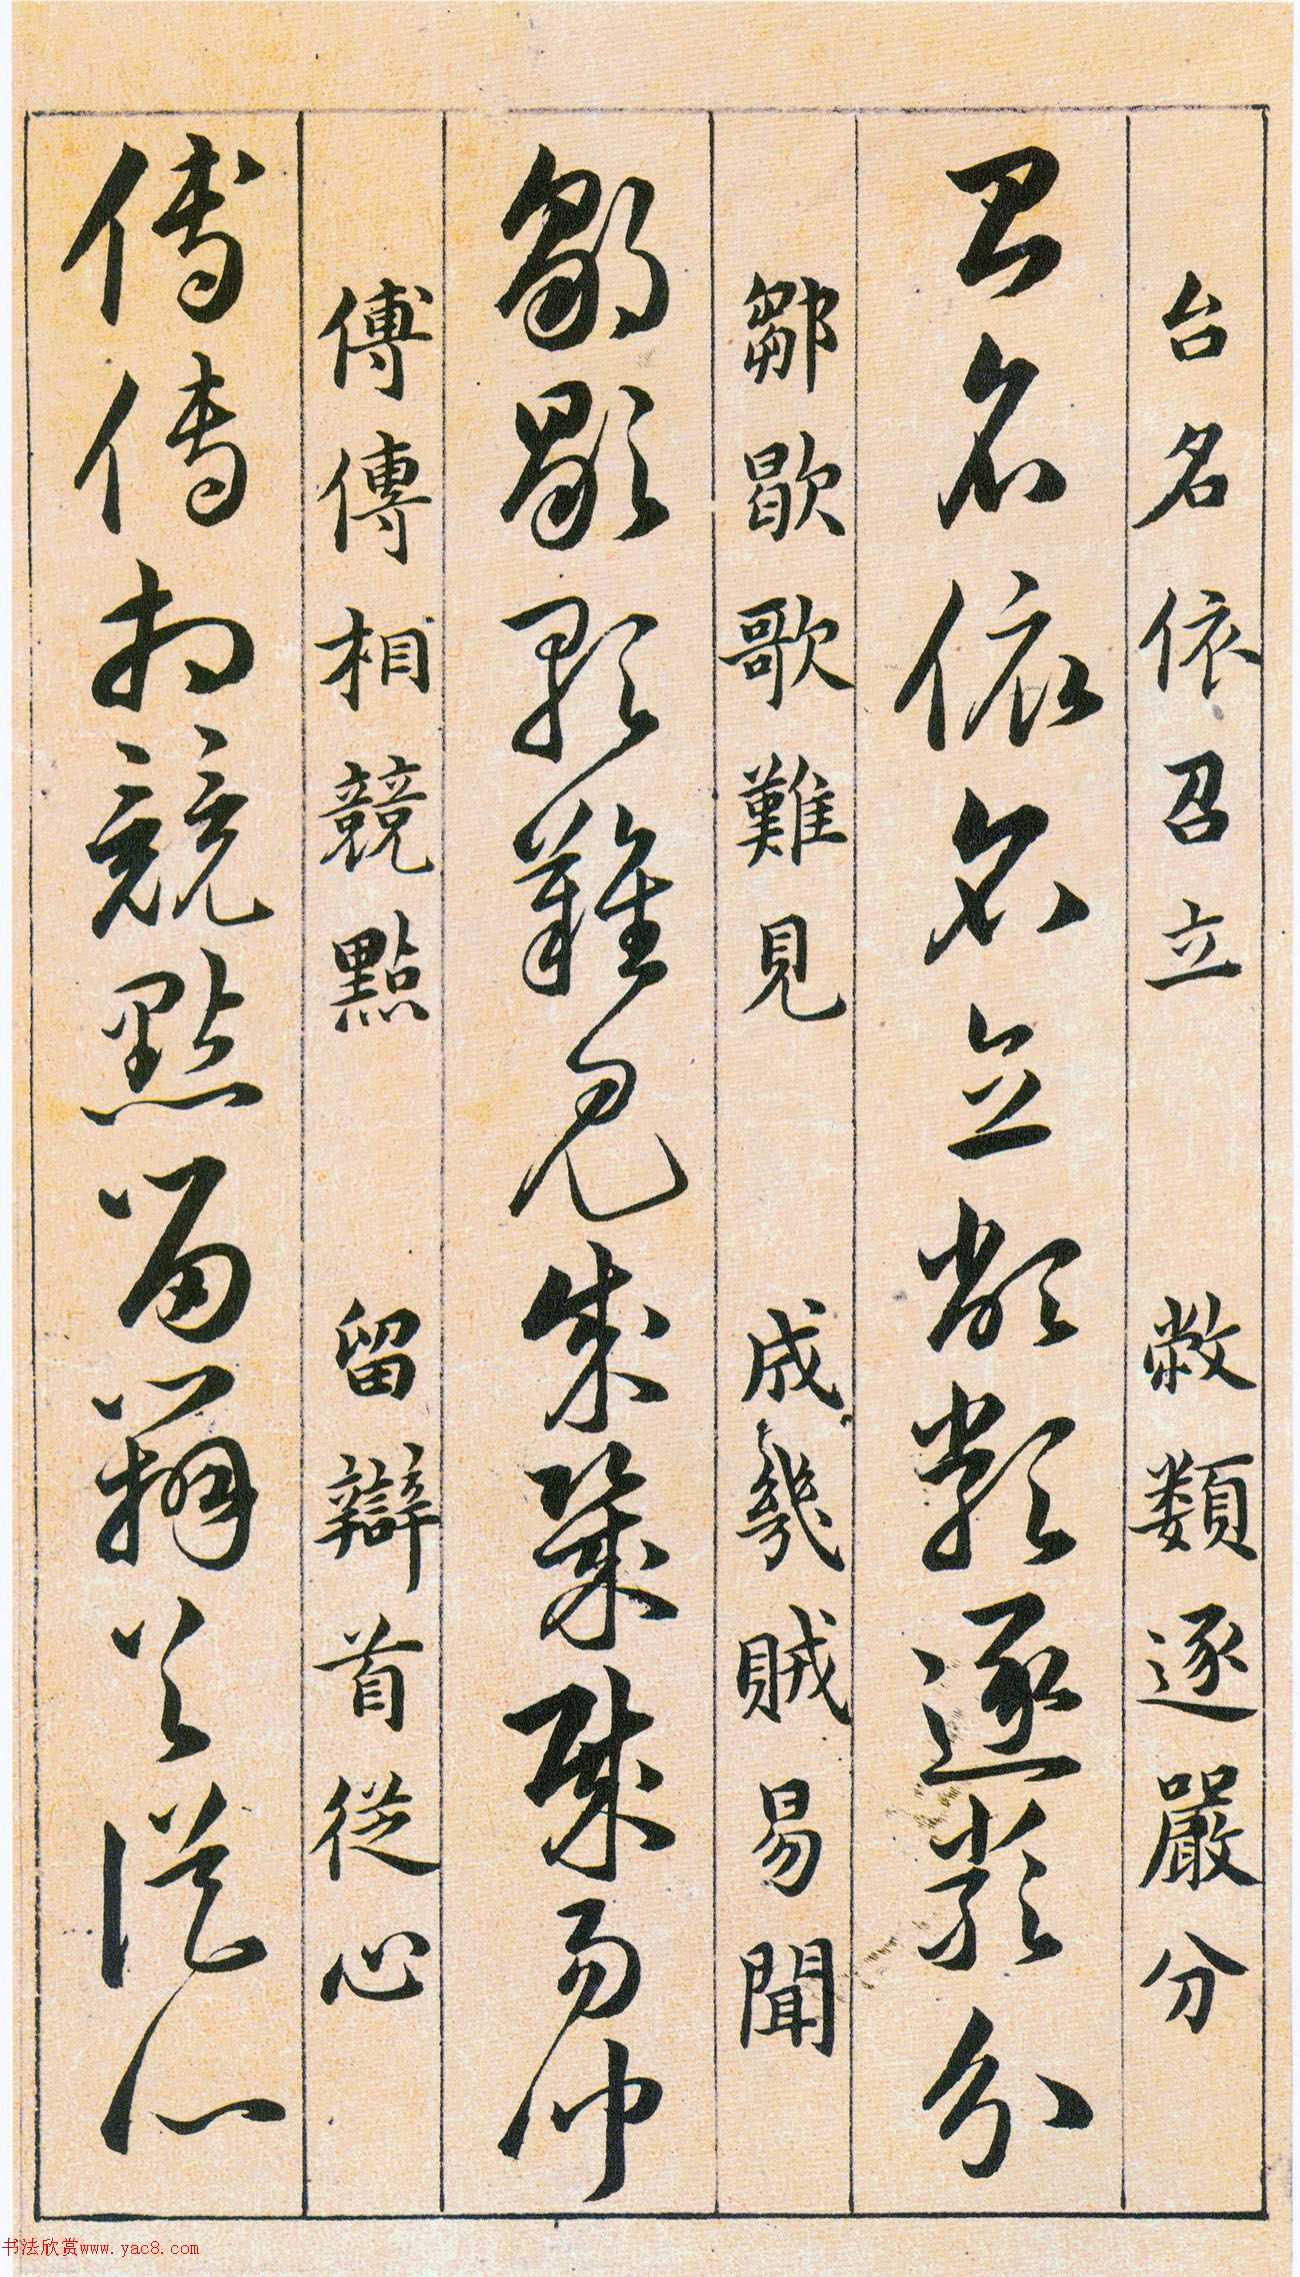 台名依召立 敝類逐嚴分
台名依召立敝類逐嚴分
鄒歇歌難見 成幾賊易聞
鄒歇歌難見成幾賊易聞
傅傳相競點 留辯首從心
傅傳相競點留辯首從心
书法欣赏www.yac8.com